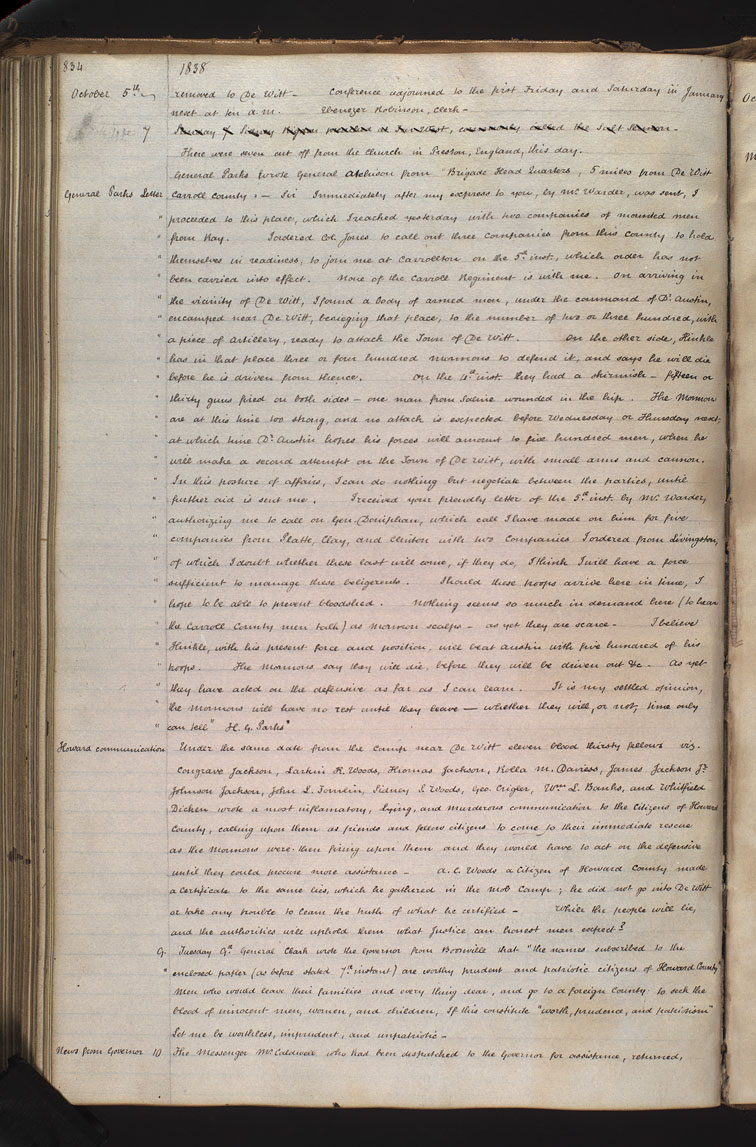 834 1838
October 5th removed to De Witt — Conference adjourned to the first Friday and Saturday in January
next at ten a.m. Ebenezer Robinson, clerk —
7 Sunday 7 Sidney called the Salt Sermon —
There were seven cut off from the Church in Preston, England, this day.
General Parks wrote General Atchison from "Brigade Head Quarters, 5 miles from De Witt
General Parks Letter Carroll County. — Sir Immediately after my express to you, by Mr Warder, was sent, I
" proceeded to this place, which I reached yesterday with two companies of mounted men
" from Ray. I ordered Col. Jones to call out three companies from this county to hold
" themselves in readiness, to join me at Carrollton on the 5th inst., which order has not
" been carried into effect. None of the Carroll Regiment is with me. On arriving in
" the vicinity of De Witt, I found a body of armed men, under the command of Dr Austin,
" encamped near De Witt, besieging that place, to the number of two or three hundred, with
" a piece of artillery, ready to attack the Town of De Witt. On the other side, Hinkle
" has in that place three or four hundred mormons to defend it, and says he will die
" before he is driven from thence. On the 4th inst. they had a skirmish — fifteen or
" thirty guns fired on both sides — one man from Saline wounded in the hip. The Mormon
" are at this time too strong, and no attack is expected before Wednesday or Thursday next;
" at which time Dr Austin hopes his forces will amount to five hundred men, when he
" will make a second attempt on the Town of De Witt, with small arms and cannon.
" In this posture of affairs, I can do nothing but negotiate between the parties, until
" further aid is sent me. I received your friendly letter of the 5th inst. by Mr Warder,
" authorizing me to call on Gen. Doniphan, which call I have made on him for five
" companies from Platte, Clay, and Clinton with two Companies I ordered from Livingston,
" of which I doubt whether these last will come, if they do, I think I will have a force
" sufficient to manage these beligerents. Should these troops arrive here in time, I
" hope to be able to prevent bloodshed. Nothing seems so much in demand here (to hear
" the Carroll County men talk) as Mormon scalps — as yet they are scarce — I believe
" Hinkle, with his present force and position, will beat Austin with five hundred of his
" troops. The Mormons say they will die, before they will be driven out &c — As yet
" they have acted on the defensive as far as I can learn. It is my settled opinion,
" the Mormons will have no rest until they leave — whether they will, or not, time only
" can tell" H. G. Parks"
Howard communication Under the same date from the camp near De Witt eleven blood thirsty fellows viz.
Congrave Jackson, Larkin K. Woods, Thomas Jackson, Rolla M. Daviess, James Jackson Jr
Johnson Jackson, John L. Tomlin, Sidney S. Woods, Geo. Crigler, Wm L. Banks, and Whitfield
Dicken wrote a most inflamatory, lying, and murderous communication to the Citizens of Howard
County, calling upon them as friends and fellow citizens to come to their immediate rescue
as the Mormons were then firing upon them and they would have to act on the defensive
until they could procure more assistance — A. C. Woods a Citizen of Howard County made
a certificate to the same lies, which he gathered in the mob Camp; he did not go into De Witt
or take any trouble to learn the truth of what he certified — While the people will lie,
and the authorities will uphold them what justice can honest men expect?
9. Tuesday 9th General Clark wrote the Governor from Boonville that "the names subscribed to the
" enclosed paper (as before stated 7th instant) are worthy prudent and patriotic citizens of Howard County"
Men who would leave their families and every thing dear, and go to a foreign County to seek the
blood of innocent men, women, and children, If this constitute "worth, prudence, and patriotism"
Let me be worthless, imprudent, and unpatriotic —
News from Governor 10 The Messenger Mr Caldwell who had been dispatched to the Governor for assistance, returned,